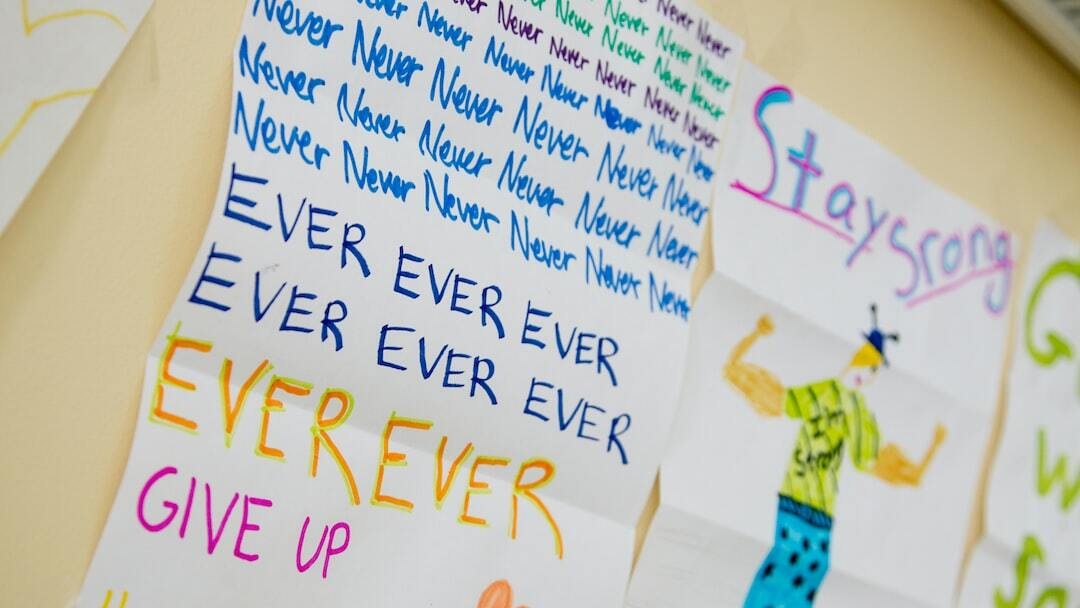 Never Never
Never Never Never
Never Never Never Never
Never Never Never Never Never
Never Never Never Never Never Never
Never Never Never Never Never Never
Never Never Never Never Never Never
Never Never Never Never Never Never
EVER EVER EVER
EVER EVER EVER
EVER EVER
GIVE UP
Stay Srong
I'm
strong